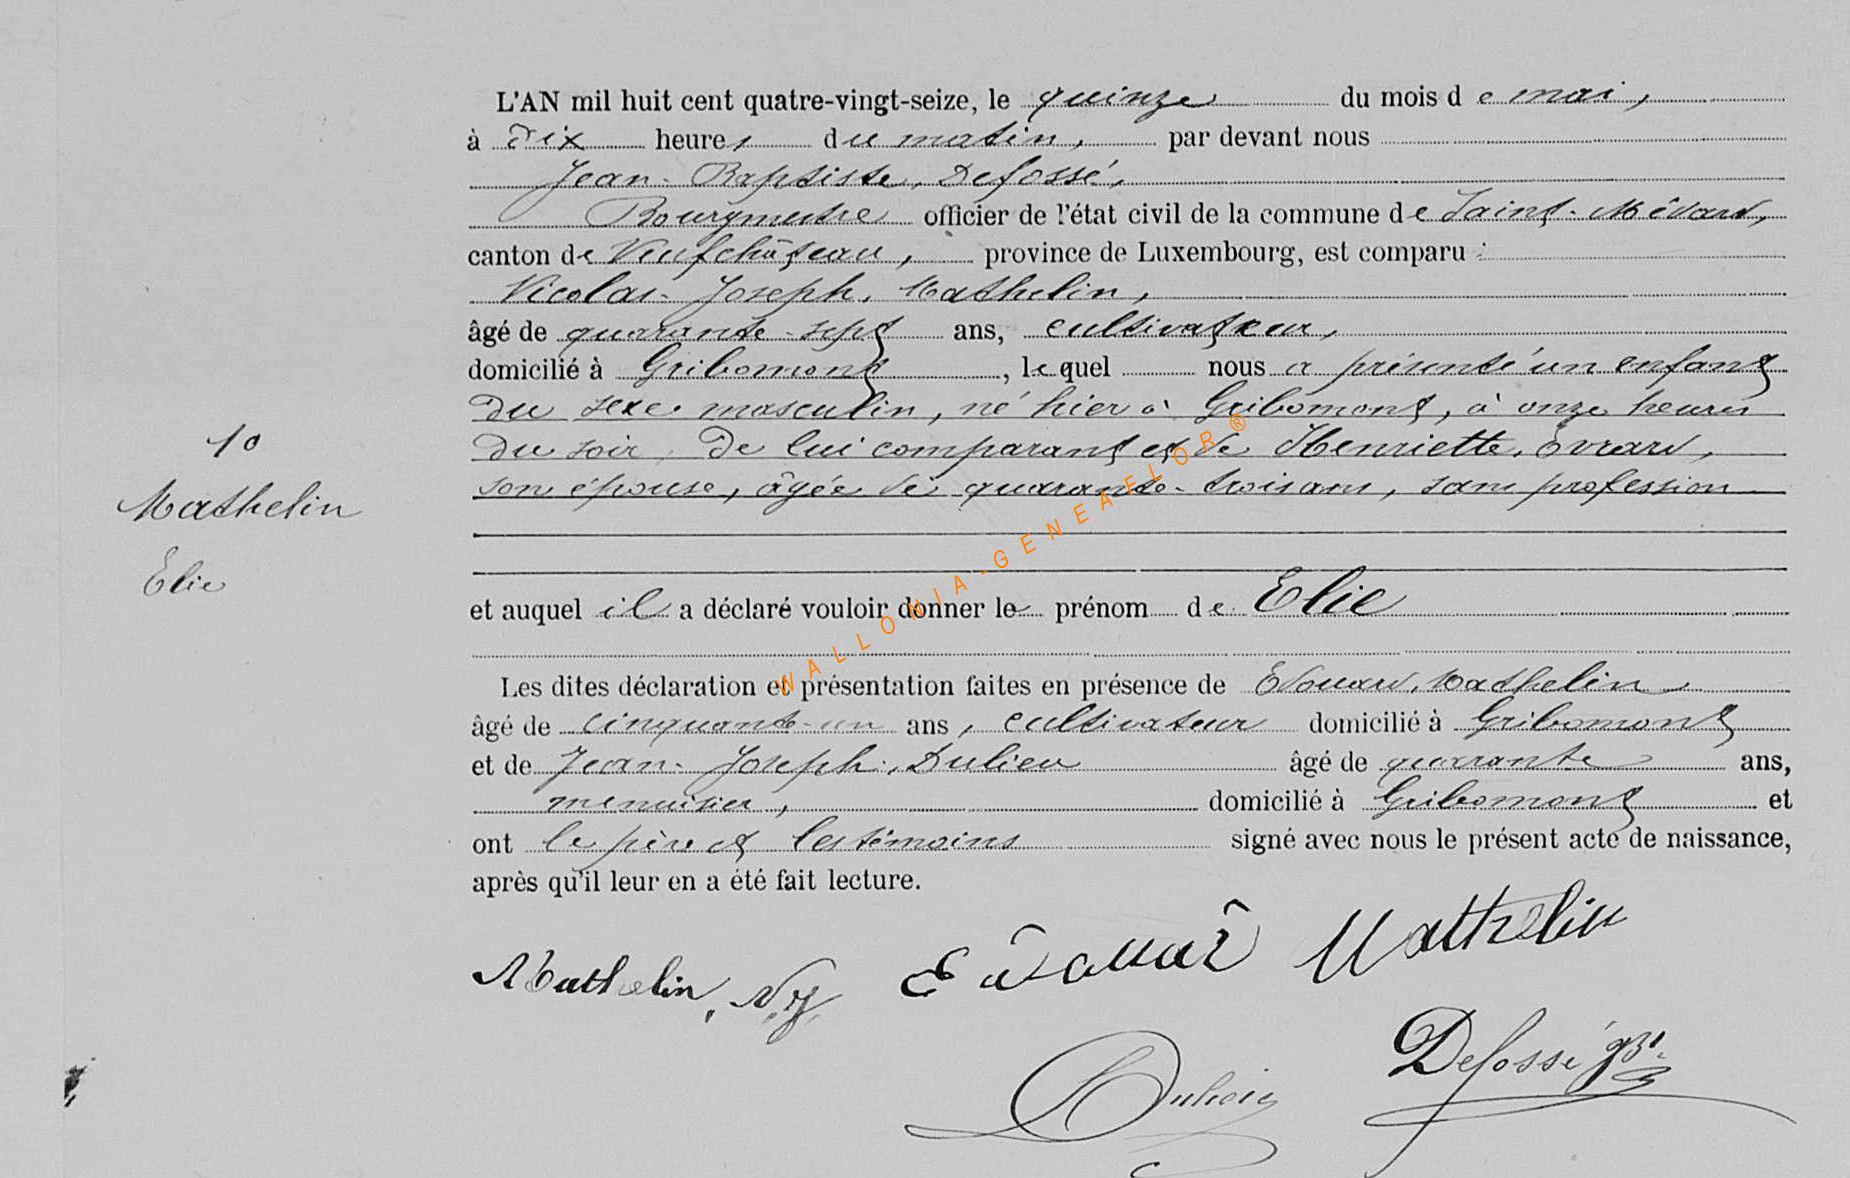 L'AN mil huit cent quatre-vingt-seize, le quinze du mois de mai,
à Dix heures du matin, par devant nous
Jean-Baptiste, Defossé,
Bourgmestre officier de l'état civil de la commune de Saint-Médard,
canton de Neufchâteau, province de Luxembourg, est comparu :
Nicolas-Joseph, Mathelin,
âgé de quarante-sept ans, cultivateur,
domicilié à Gribomont, lequel nous a présenté un enfant
du sexe masculin, né hier à Gribomont, à onze heures
du soir, de lui comparant et de Henriette, Evrard,
son épouse, âgée de quarante-trois ans, sans profession
10
Mathelin
Elie
et auquel il a déclaré vouloir donner le prénom de Elie
Les dites déclaration et présentation faites en présence de Edouard, Mathelin
âgé de cinquante-un ans, cultivateur domicilié à Gribomont
et de Jean-Joseph, Dulieu âgé de quarante ans,
menuisier, domicilié à Gribomont et
ont le père et les témoins signé avec nous le présent acte de naissance,
après qu'il leur en a été fait lecture.
Mathelin, N. J. Edouard Mathelin
Defossé
WALLONIA-GENEAFLOR®